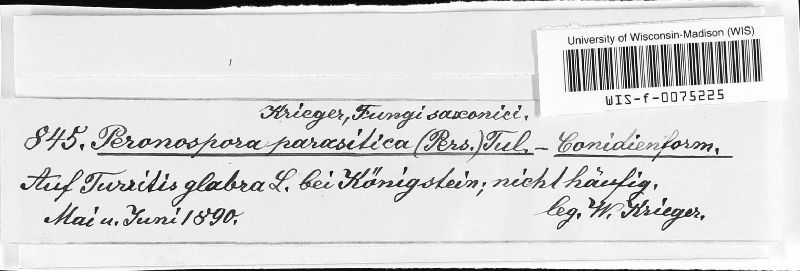 University of Wisconsin-Madison (WIS)
WIS-f-0075225
Krieger, Fungi saxonici.
845. Peronospora parasitica (Pers.) Tul. – Conidienform.
Auf Turritis glabra L. bei Königstein; nicht häufig.
Mai u. Juni 1890. leg. W. Krieger.